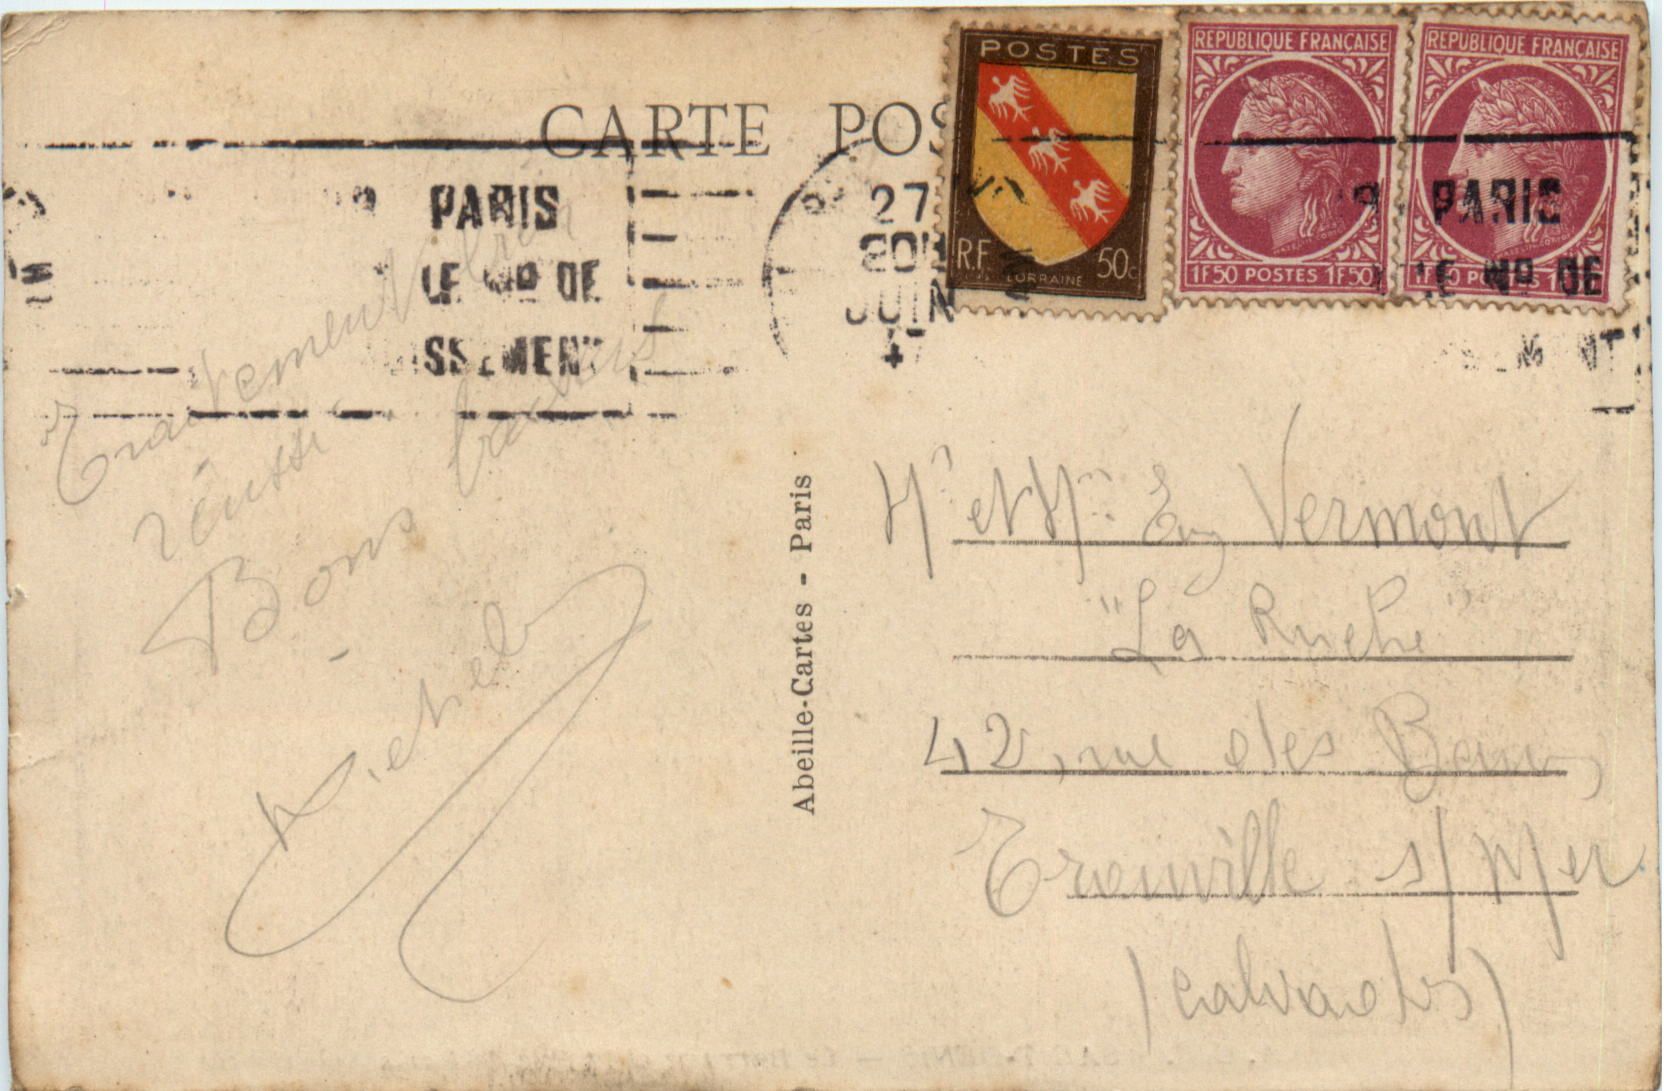 CARTE POS
POSTES
RF 50c
LORRAINE
REPUBLIQUE FRANÇAISE
1F50 POSTES 1F50
REPUBLIQUE FRANÇAISE
PARIS
LE Nº DE
ISSEMENT
27
20H
JUIN
47
PARIS
LE Nº DE
Traitement bien
réussi.
Bons baisers
Michel
Abeille-Cartes - Paris
Mr et Mme Eug Vermont
"La Ruche"
42, rue des Bains
Trouville s/Mer
(Calvados)